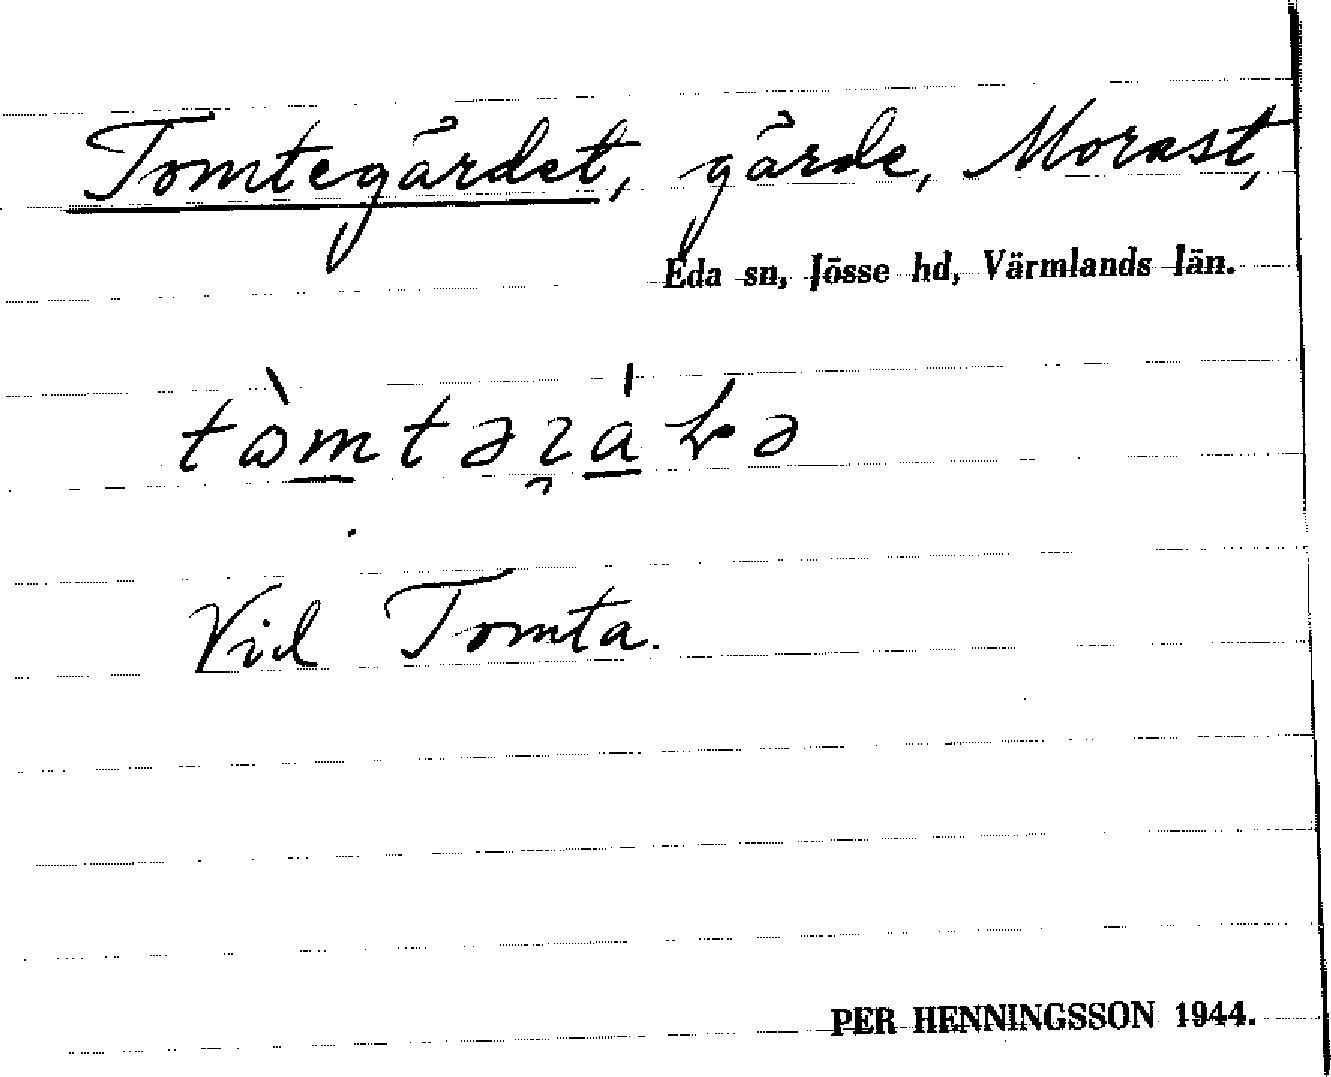 Tomtegärdet, gärde, Morast,
Eda sn, Jösse hd, Värmlands län.
Vid Tomta.
PER HENNINGSSON 1944.